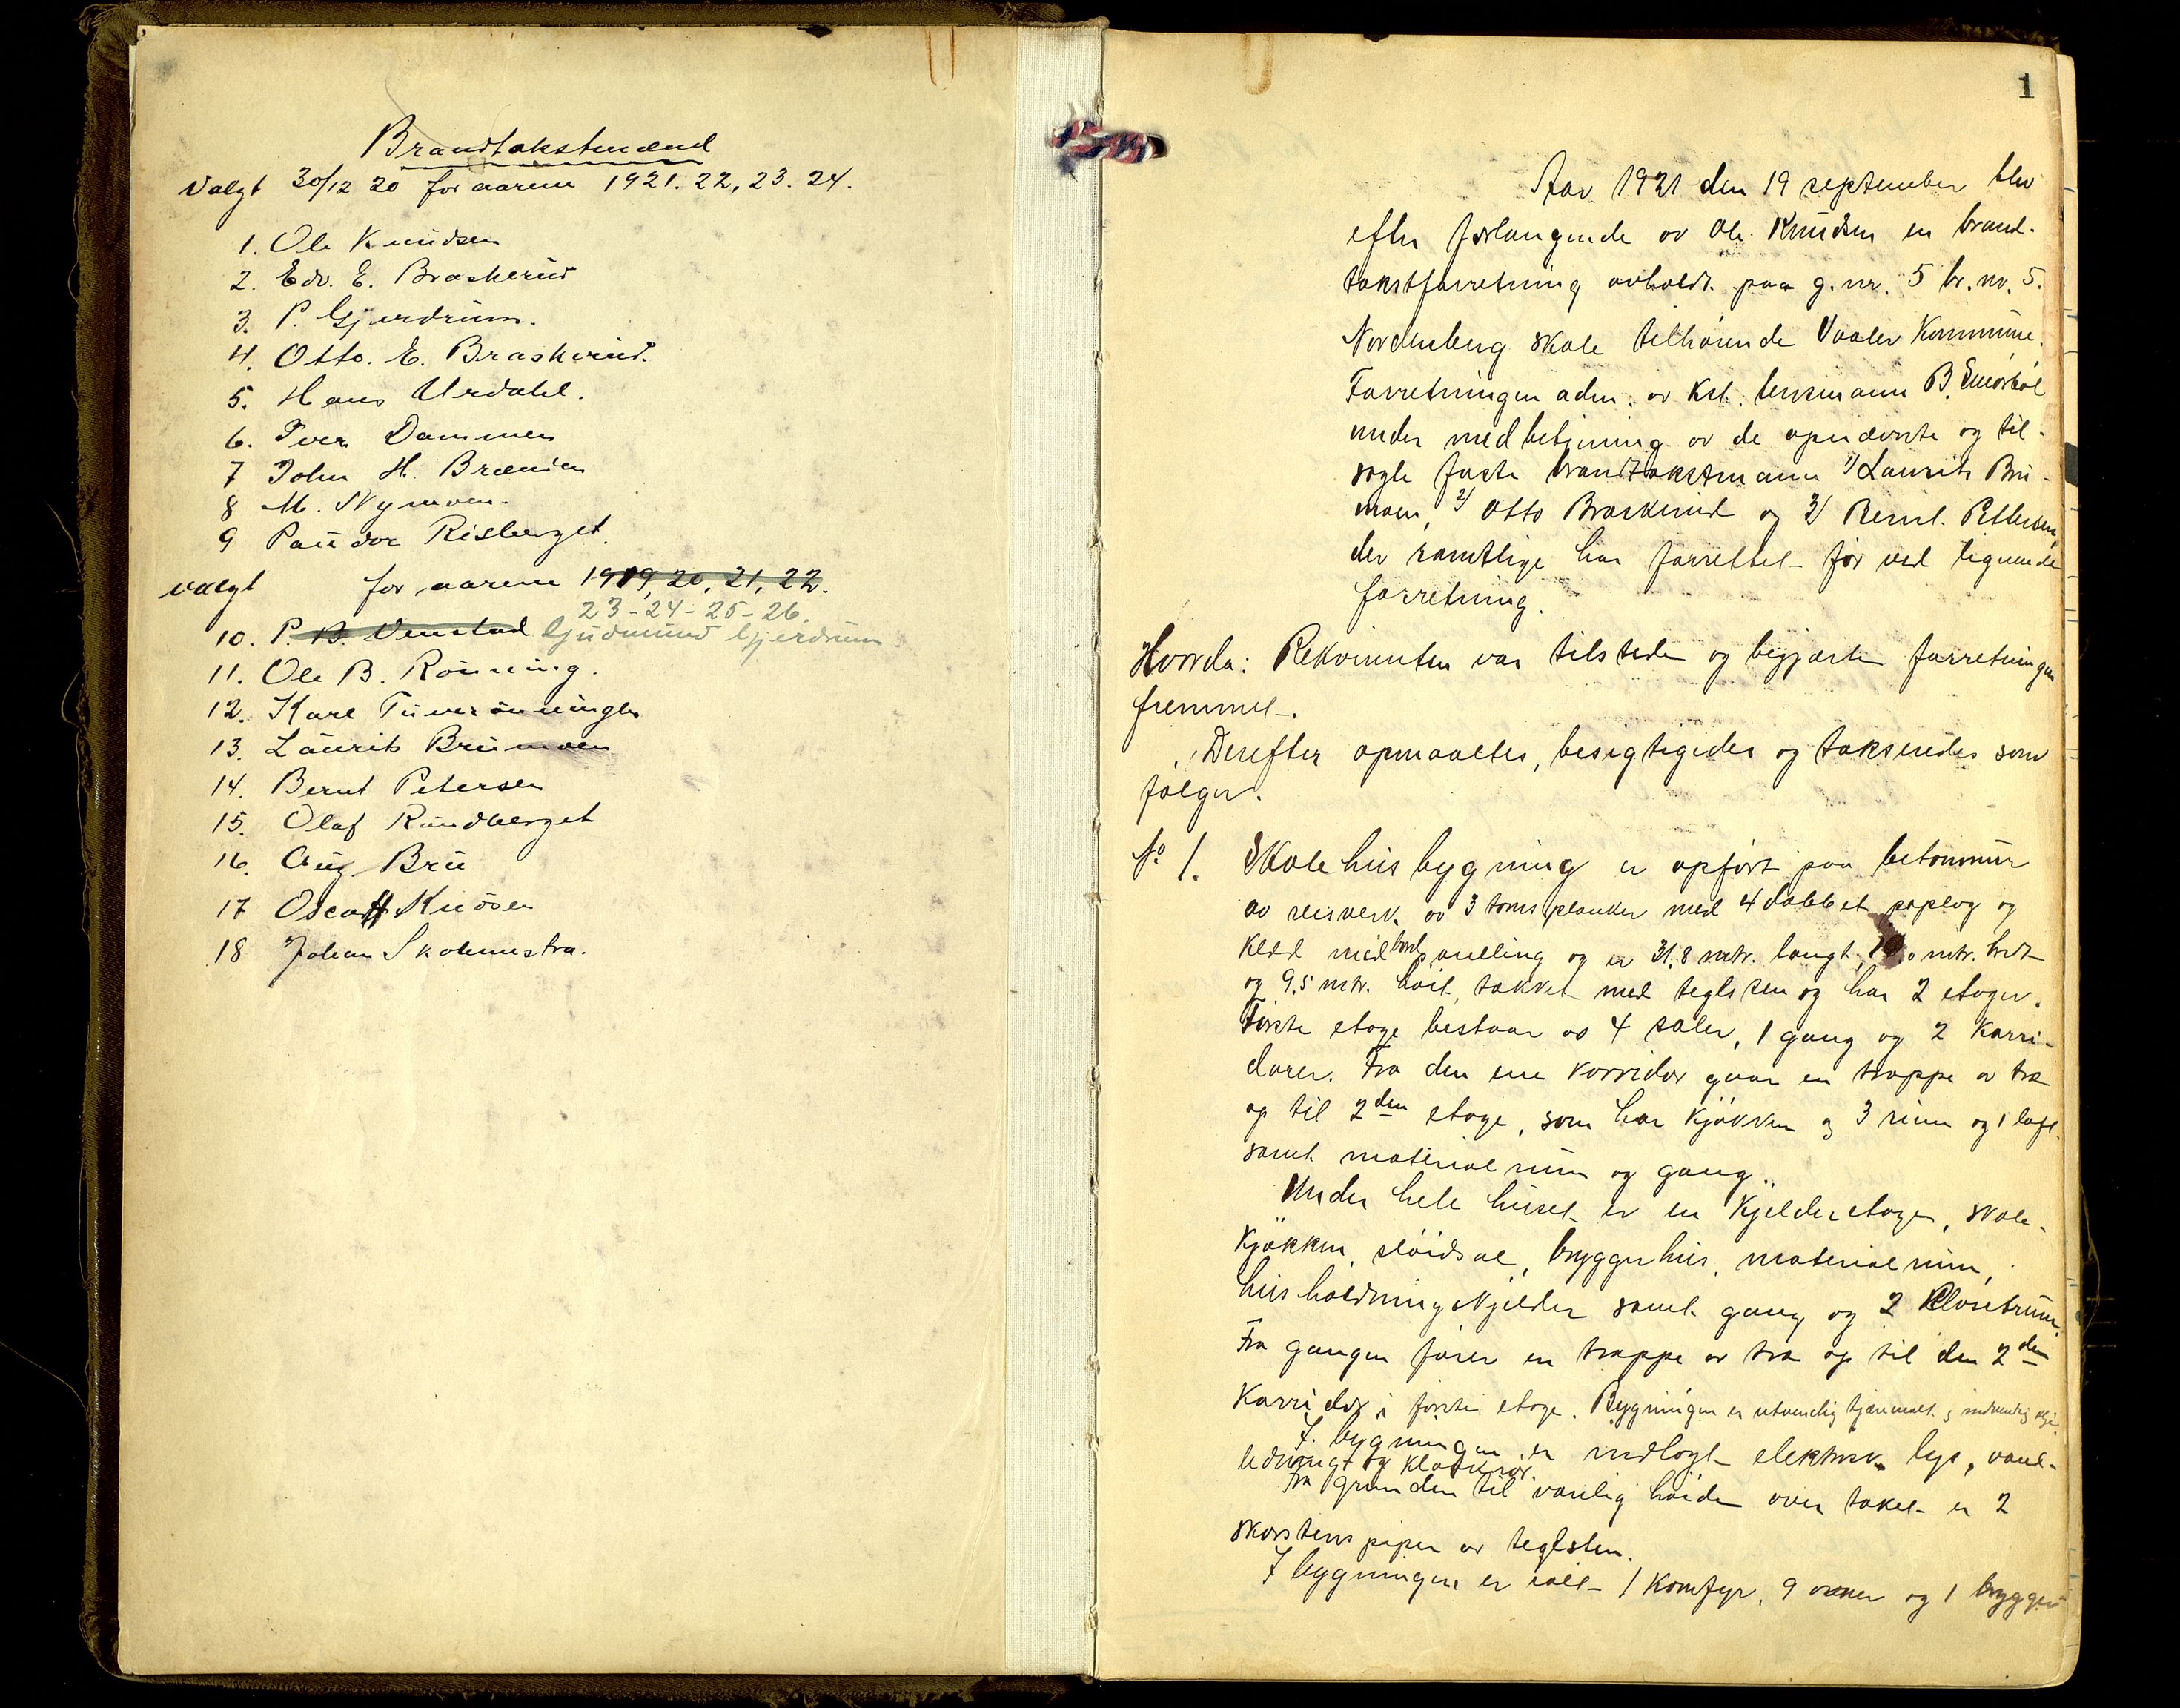 Brandtakstmænd
Valgt 30/12 20 for aarene 1921. 22, 23. 24.
1. Ole Knudsen
2. Edv. E. Braskerud
3. P. Gjerdrum.
4. Otto. E. Braskerud.
5. Hans Urdahl.
6. Iver Dammen
7 John H. Brænden
8 M. Nymoen.
9 Paudor Risberget.
valgt for aarene 1919, 20, 21, 22.
23-24-25-26.
10. P. B. Venstad Gudmund Gjerdrum
11. Ole B. Rønning.
12. Karl
13. Laurits Brumoen
14. Bernt Petersen
15. Olaf Rundberget
16. Aug Bru
17 Oscar Knosen
18 Johan
1
Aar 1921 den 19 september blev
efter forlangende av Ole Knudsen en brand-
takstforretning avholdt paa g.nr. 5 br.nr. 5.
Nordenberg skole tilhørende Vaaler Kommune.
Forretningen adm. av Kst. lensmann B.
under medbetjening av de opnævnte og til-
sagte faste brandtakstmænn 1/ Laurits Bru-
moen, 2/ Otto Braskerud og 3/ Bernt Pettersen,
der samtlige har forrettet før ved lignende
forretning.
Hvorda: Rekvirenten var tilstede og begjærte forretningen
fremmet.
Derefter opmaaltes, besigtigedes og takseredes som
følger.
No 1. Skolehusbygning er opført paa betonmur
av reisverk av 3 toms planker med 4 dobbelt paplag og
Kledd med bord panelling og er 31,8 mtr. langt, mtr. bredt
og 9.5 mtr. høit, takket med teglsten og har 2 etager.
Første etage bestaar av 4 saler, 1 gang og 2 Korri-
dorer. Fra den ene korridor gaar en trappe av træ
op til 2den etage, som har Kjøkken og 3 rum og 1 loft
samt materialrum og gang.
Under hele huset er en Kjelderetage, skole-
Kjøkken, sløidsal, bryggerhus, materialrum,
husholdningskjelder samt gang og 2 Klosetrum.
Fra gangen fører en trappe av træ op til den 2den
Korridor i første etage. Bygningen er utvendig tjæremalt og indvendig
I bygningen er indlagt elektrisk lys, vand-
ledning og kloakrør.
Fra grunden til vanlig høide over taket er 2
skorstenspiper av teglsten.
I bygningen er ialt 1 Komfyr, 9 ovner og 1 brygger